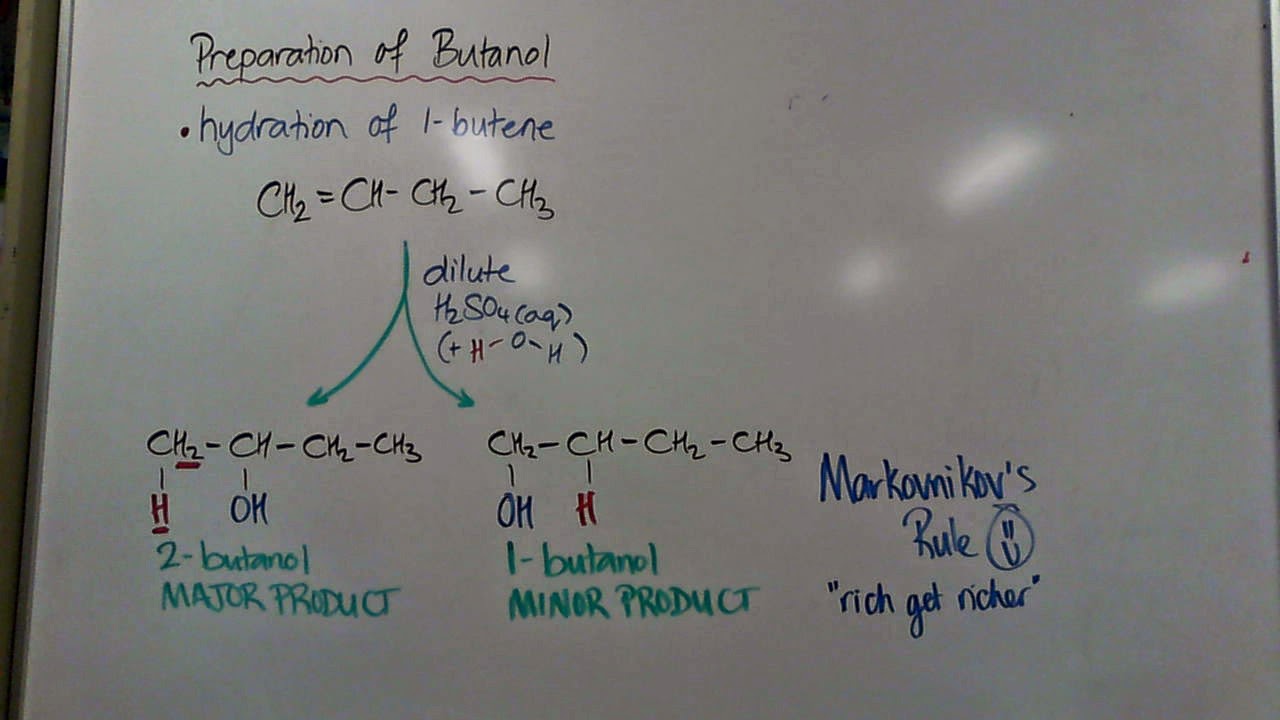 Preparation of Butanol
• hydration of 1-butene
CH₂=CH-CH₂-CH₃
dilute
H₂SO₄(aq)
(+ H-O-H)
CH₂-CH-CH₂-CH₃
H OH
2-butanol
MAJOR PRODUCT
CH₂-CH-CH₂-CH₃
OH H
1-butanol
MINOR PRODUCT
Markovnikov's
Rule
"rich get richer"